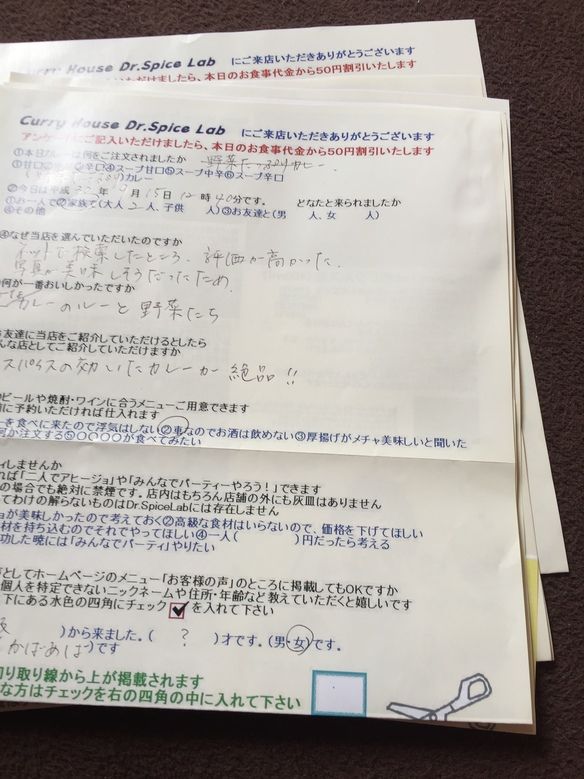 Curry House Dr.Spice Lab にご来店いただきありがとうございます
いただけましたら、本日のお食事代金から50円割引いたします
Curry House Dr.Spice Lab にご来店いただきありがとうございます
アンケートにご記入いただけましたら、本日のお食事代金から50円割引いたします
①本日カレーは何をご注文されましたか 野菜たっぷりカレー
①甘口②中辛③辛口④スープ甘口⑤スープ中辛⑥スープ辛口
)カレー
②今日は平成 月15日12時40分です。 どなたと来られましたか
①お一人で②家族で(大人 2人、子供 人)③お友達と(男 人、女 人)
④その他
④なぜ当店を選んでいただいたのですか
ネットで検索したところ、評価が高かった。
写真が美味しそうだったため。
何が一番おいしかったですか
カレーのルーと野菜たち
友達に当店をご紹介していただけるとしたら
んな店としてご紹介していただけますか
スパイスの効いたカレーが絶品!!
ビールや焼酎・ワインに合うメニューご用意できます
前に予約いただければ仕入れます
ーを食べに来たので浮気はしない②車なのでお酒は飲めない③厚揚げがメチャ美味しいと聞いた
何か注文する⑤〇〇〇〇が食べてみたい
ィしませんか
れば「二人でアヒージョ」や「みんなでパーティーやろう!」できます
の場合でも絶対に禁煙です。店内はもちろん店舗の外にも灰皿はありません
てわけの解らないものはDr.SpiceLabには存在しません
ョが美味しかったので考えておく②高級な食材はいらないので、価格を下げてほしい
材を持ち込むのでそれでやってほしい④一人( )円だったら考える
功した暁には「みんなでパーティ」やりたい
声としてホームページのメニュー「お客様の声」のところに掲載してもOKですか
個人を特定できないニックネームや住所・年齢など教えていただくと嬉しいです
下にある水色の四角にチェック を入れて下さい
)から来ました。( ? )才です。(男・女)です。
かばあば)です
切り取り線から上が掲載されます
な方はチェックを右の四角の中に入れて下さい